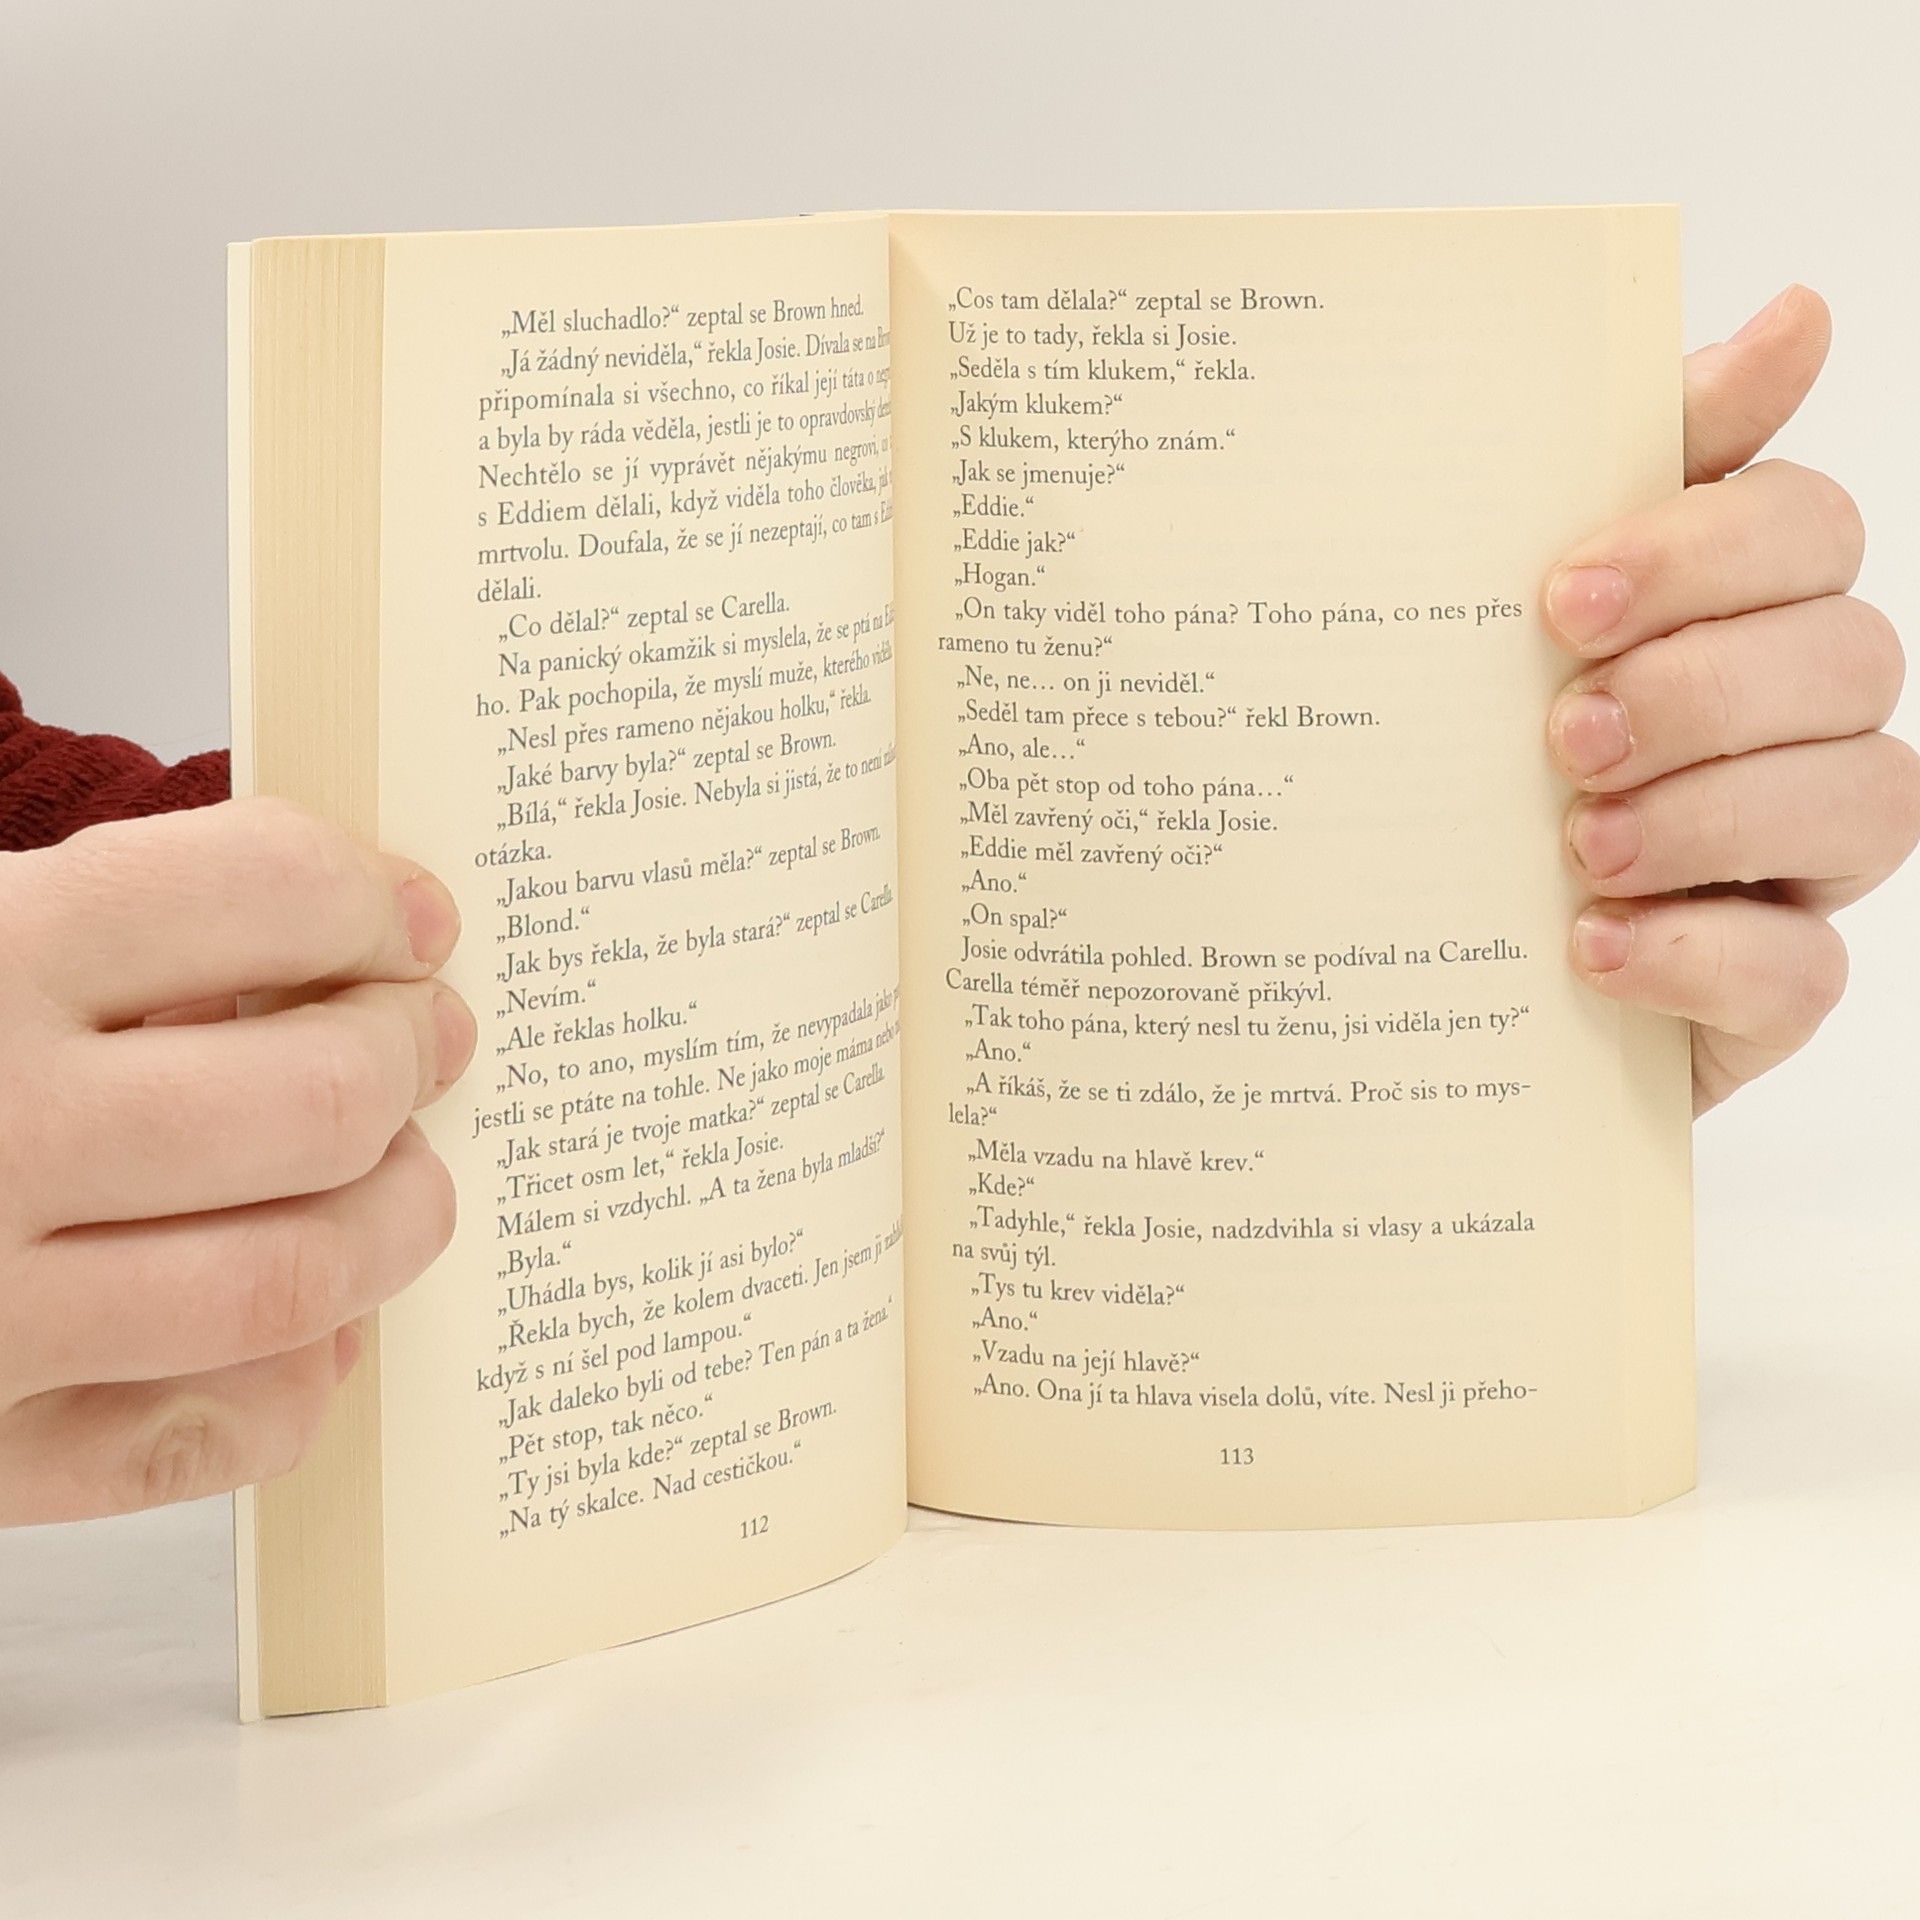 „Měl sluchadlo?“ zeptal se Brown hned.
„Já žádný neviděla,“ řekla Josie. Dívala se na
připomínala si všechno, co říkal její táta o
a byla by ráda věděla, jestli je to opravdovský
Nechtělo se jí vyprávět nějakýmu negrovi, co
s Eddiem dělali, když viděla toho člověka, jak
mrtvolu. Doufala, že se jí nezeptají, co tam s
dělali.
„Co dělal?“ zeptal se Carella.
Na panický okamžik si myslela, že se ptá na
ho. Pak pochopila, že myslí muže, kterého
„Nesl přes rameno nějakou holku,“ řekla.
„Jaké barvy byla?“ zeptal se Brown.
„Bílá,“ řekla Josie. Nebyla si jistá, že to není
otázka.
„Jakou barvu vlasů měla?“ zeptal se Brown.
„Blond.“
„Jak bys řekla, že byla stará?“ zeptal se Carella.
„Nevím.“
„Ale řeklas holku.“
„No, to ano, myslím tím, že nevypadala jako
jestli se ptáte na tohle. Ne jako moje máma nebo
„Jak stará je tvoje matka?“ zeptal se Carella.
„Třicet osm let,“ řekla Josie.
Málem si vzdychl. „A ta žena byla mladší?“
„Byla.“
„Uhádla bys, kolik jí asi bylo?“
„Řekla bych, že kolem dvaceti. Jen jsem ji
když s ní šel pod lampou.“
„Jak daleko byli od tebe? Ten pán a ta žena.“
„Pět stop, tak něco.“
„Ty jsi byla kde?“ zeptal se Brown.
„Na tý skalce. Nad cestičkou.“
112
„Cos tam dělala?“ zeptal se Brown.
Už je to tady, řekla si Josie.
„Seděla s tím klukem,“ řekla.
„Jakým klukem?“
„S klukem, kterýho znám.“
„Jak se jmenuje?“
„Eddie.“
„Eddie jak?“
„Hogan.“
„On taky viděl toho pána? Toho pána, co nes přes
rameno tu ženu?“
„Ne, ne… on ji neviděl.“
„Seděl tam přece s tebou?“ řekl Brown.
„Ano, ale…“
„Oba pět stop od toho pána…“
„Měl zavřený oči,“ řekla Josie.
„Eddie měl zavřený oči?“
„Ano.“
„On spal?“
Josie odvrátila pohled. Brown se podíval na Carellu.
Carella téměř nepozorovaně přikývl.
„Tak toho pána, který nesl tu ženu, jsi viděla jen ty?“
„Ano.“
„A říkáš, že se ti zdálo, že je mrtvá. Proč sis to mys-
lela?“
„Měla vzadu na hlavě krev.“
„Kde?“
„Tadyhle,“ řekla Josie, nadzdvihla si vlasy a ukázala
na svůj týl.
„Tys tu krev viděla?“
„Ano.“
„Vzadu na její hlavě?“
„Ano. Ona jí ta hlava visela dolů, víte. Nesl ji přeho-
113